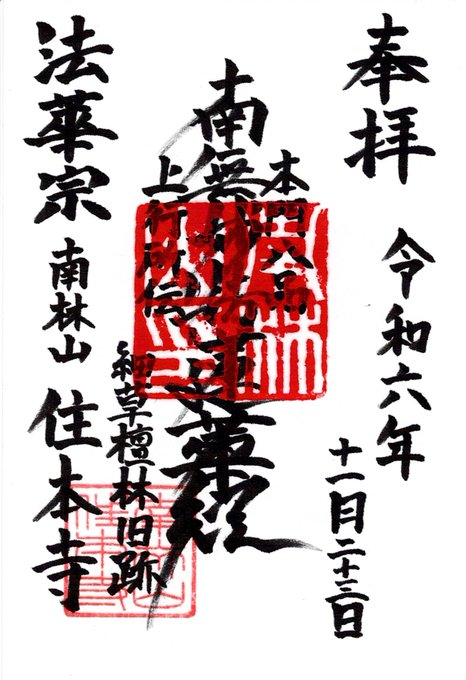 奉拝
令和六年
十一月二十三日
本門八品
上行所伝
南無妙法蓮華経
細草檀林旧跡
法華宗
南林山
住本寺